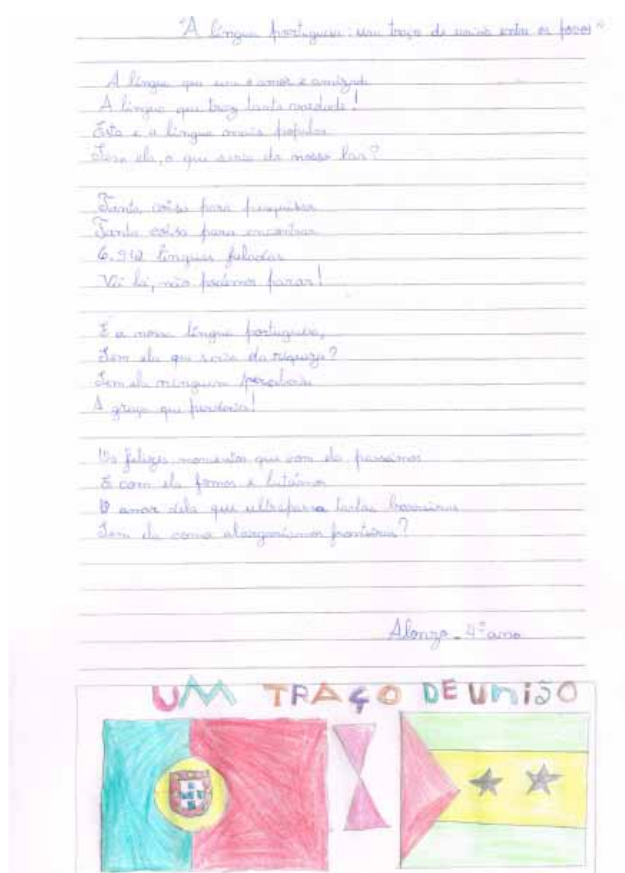 "A língua portuguesa: um traço de união entre os povos"
A língua que une o amor e amizade
A língua que traz tanta verdade!
Esta é a língua mais popular
Sem ela, o que seria do nosso lar?
Tanta coisa para pesquisar
Tanta coisa para encontrar
6.912 línguas faladas
Vá lá, não podemos parar!
E a nossa língua portuguesa,
Sem ela que seria da riqueza?
Sem ela ninguém perceberia
A graça que perderia!
Os felizes momentos que com ela passámos
E com ela fomos e lutámos
O amor dela que ultrapassa tantas barreiras
Sem ela como alargaríamos fronteiras?
Alonzo - 4º ano
UM TRAÇO DE UNIÃO